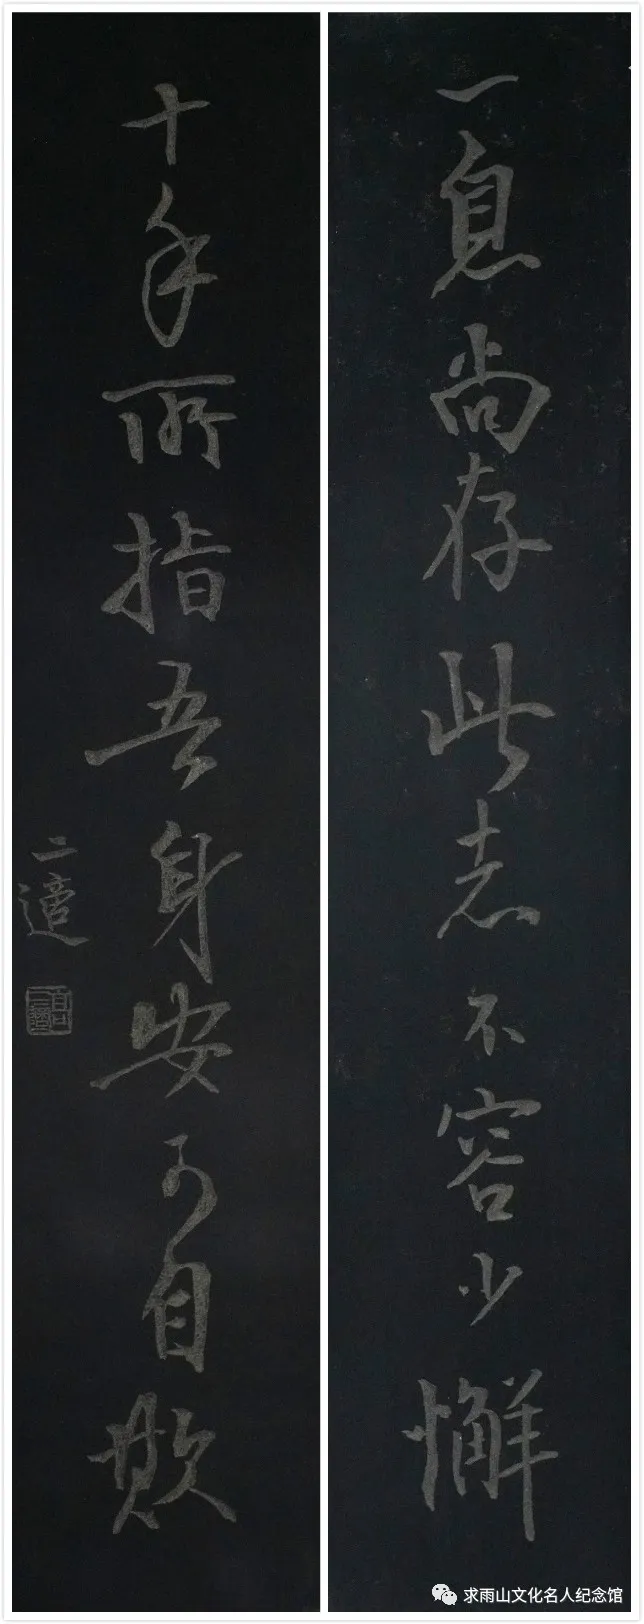 一息尚存此志不容少懈
十手所指吾身安可自欺
二適
求雨山文化名人纪念馆